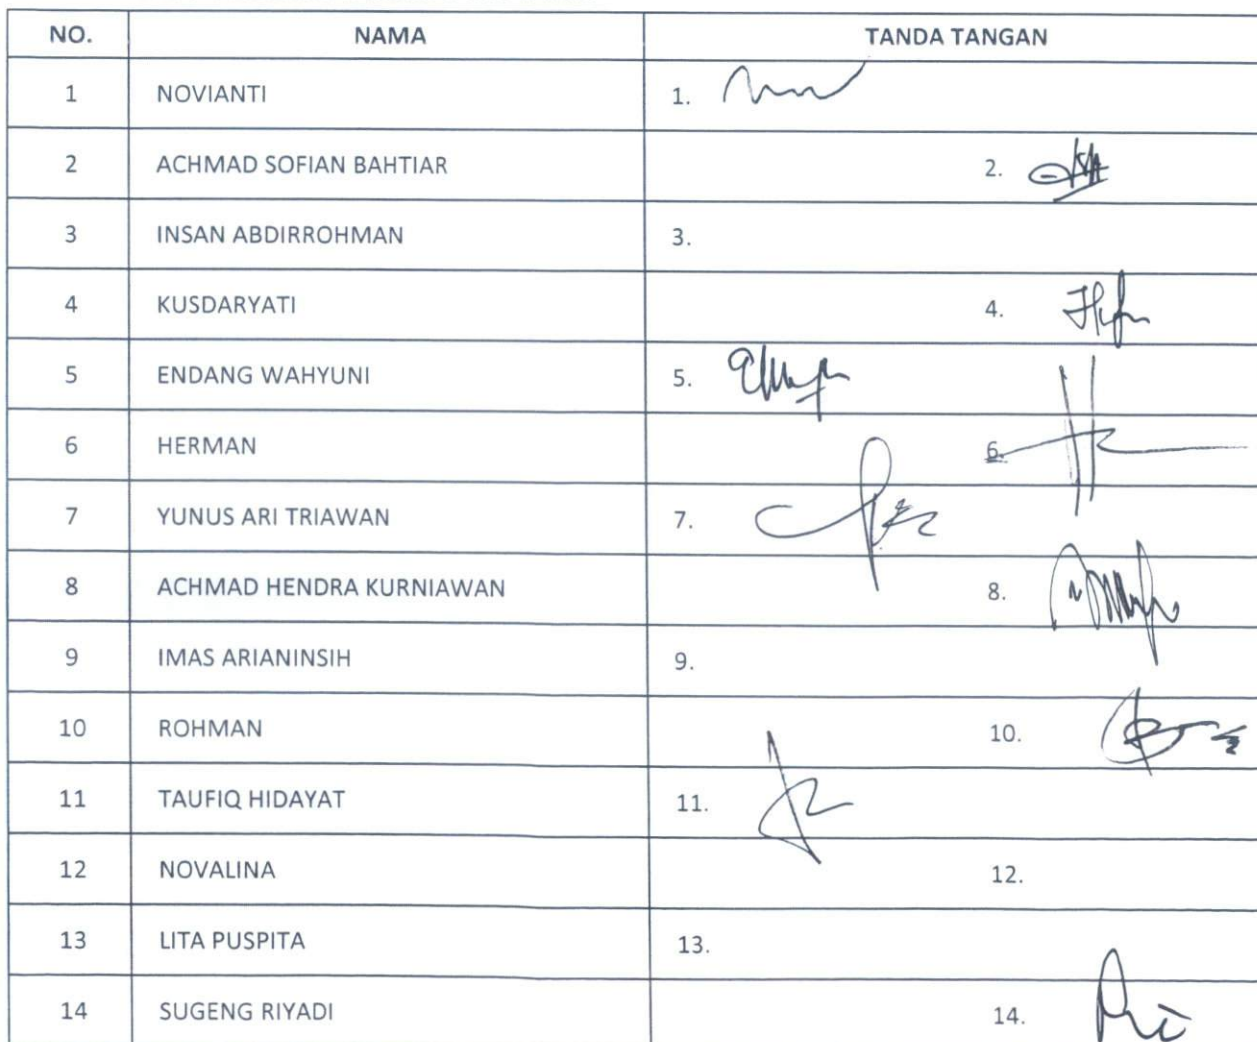 NO. NAMA TANDA TANGAN
1 NOVIANTI 1.
2 ACHMAD SOFIAN BAHTIAR 2.
3 INSAN ABDIRROHMAN 3.
4 KUSDARYATI 4.
5 ENDANG WAHYUNI 5.
6 HERMAN 6.
7 YUNUS ARI TRIAWAN 7.
8 ACHMAD HENDRA KURNIAWAN 8.
9 IMAS ARIANINSIH 9.
10 ROHMAN 10.
11 TAUFIQ HIDAYAT 11.
12 NOVALINA 12.
13 LITA PUSPITA 13.
14 SUGENG RIYADI 14.